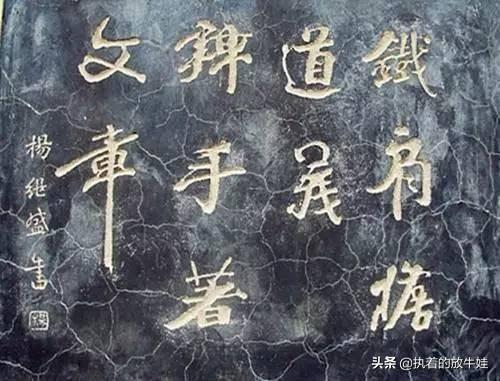 鐵肩擔
道義
辣手著
文章
楊継盛書
头条 @执着的放牛娃